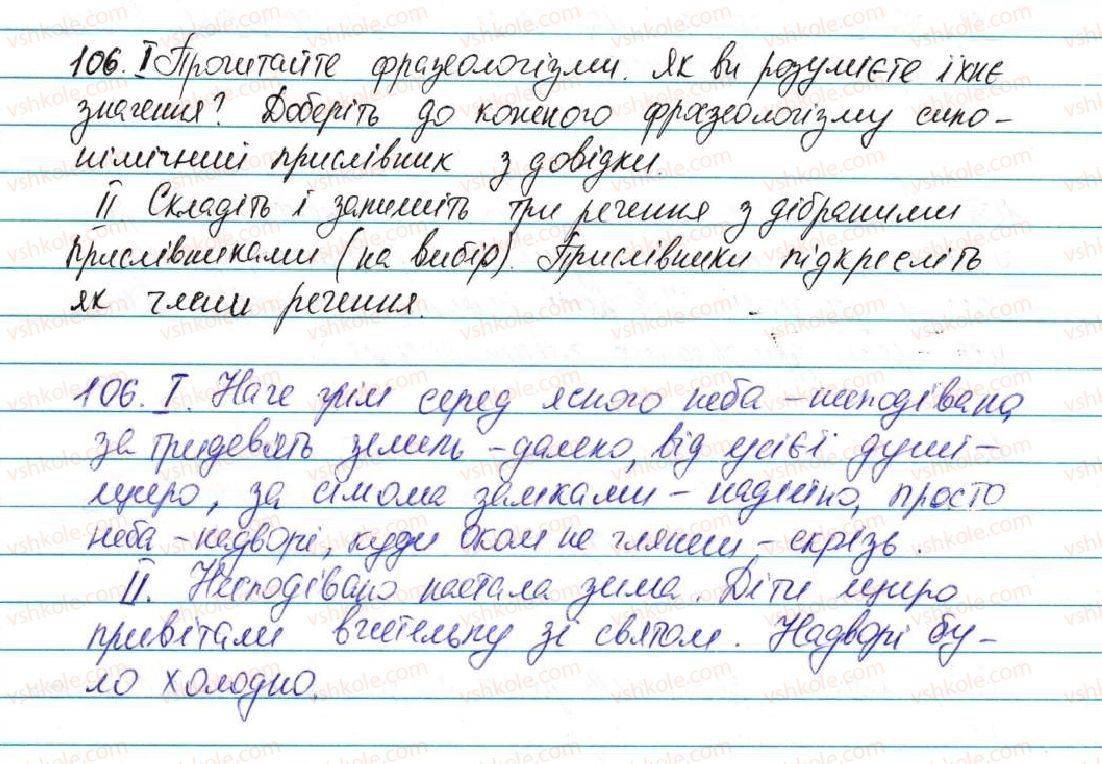 106. I Прочитайте фразеологізми. Як ви розумієте їхнє
значення? Доберіть до кожного фразеологізму сино-
німічний прислівник з довідки.
II Складіть і запишіть три речення з дібраними
прислівниками (на вибір). Прислівники підкресліть
як члени речення.
106. I. Наче грім серед ясного неба - несподівано,
за тридев'ять земель - далеко, від усієї душі -
щиро, за сімома замками - надійно, просто
неба - надворі, куди оком не глянеш - скрізь.
II. Несподівано настала зима. Діти щиро
привітали вчительку зі святом. Надворі бу-
ло холодно.